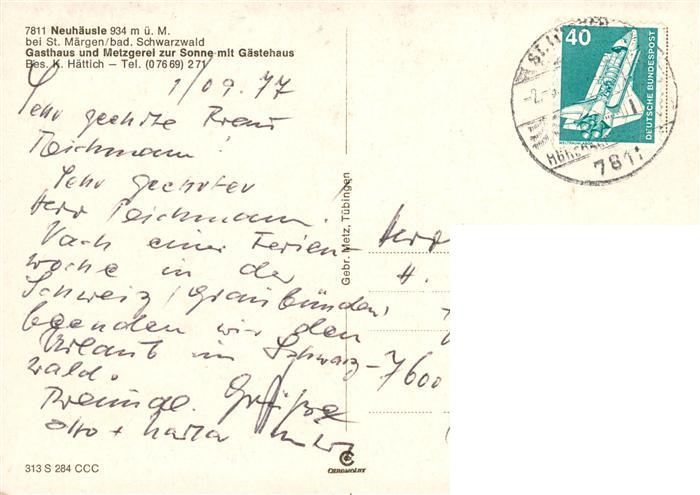 7811 Neuhäusle 934 m ü. M.
bei St. Märgen/bad. Schwarzwald
Gasthaus und Metzgerei zur Sonne mit Gästehaus
Bes. K. Hättich – Tel. (07669) 271
1/09.77
Sehr geehrte Frau
Teichmann!
Sehr geehrter
Herr Teichmann!
Nach einer Ferien-
woche in der
Schweiz/Graubünden,
beenden wir den
Urlaub im Schwarz-
wald.
Freundl. Grüße
Otto +
313 S 284 CCC
Gebr. Metz, Tübingen
CHROMOLUX
40
DEUTSCHE BUNDESPOST
7811
Herr
H.
7600